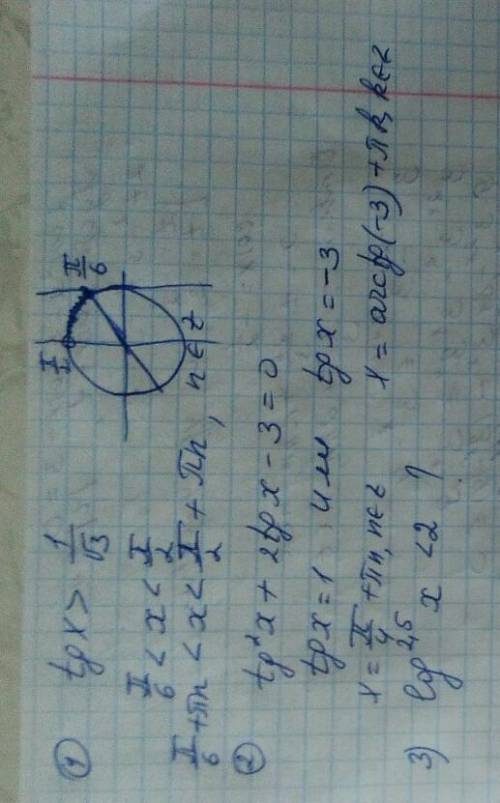 ① tg x > 1/√3
π/2
π/6
π/6 < x < π/2
π/6 + πn < x < π/2 + πn, n ∈ z
② tg²x + 2tgx - 3 = 0
tgx = 1 или tgx = -3
x = π/4 + πn, n∈z x = arctg(-3) + πk, k∈z
3) log₂,₅ x < 2 ?